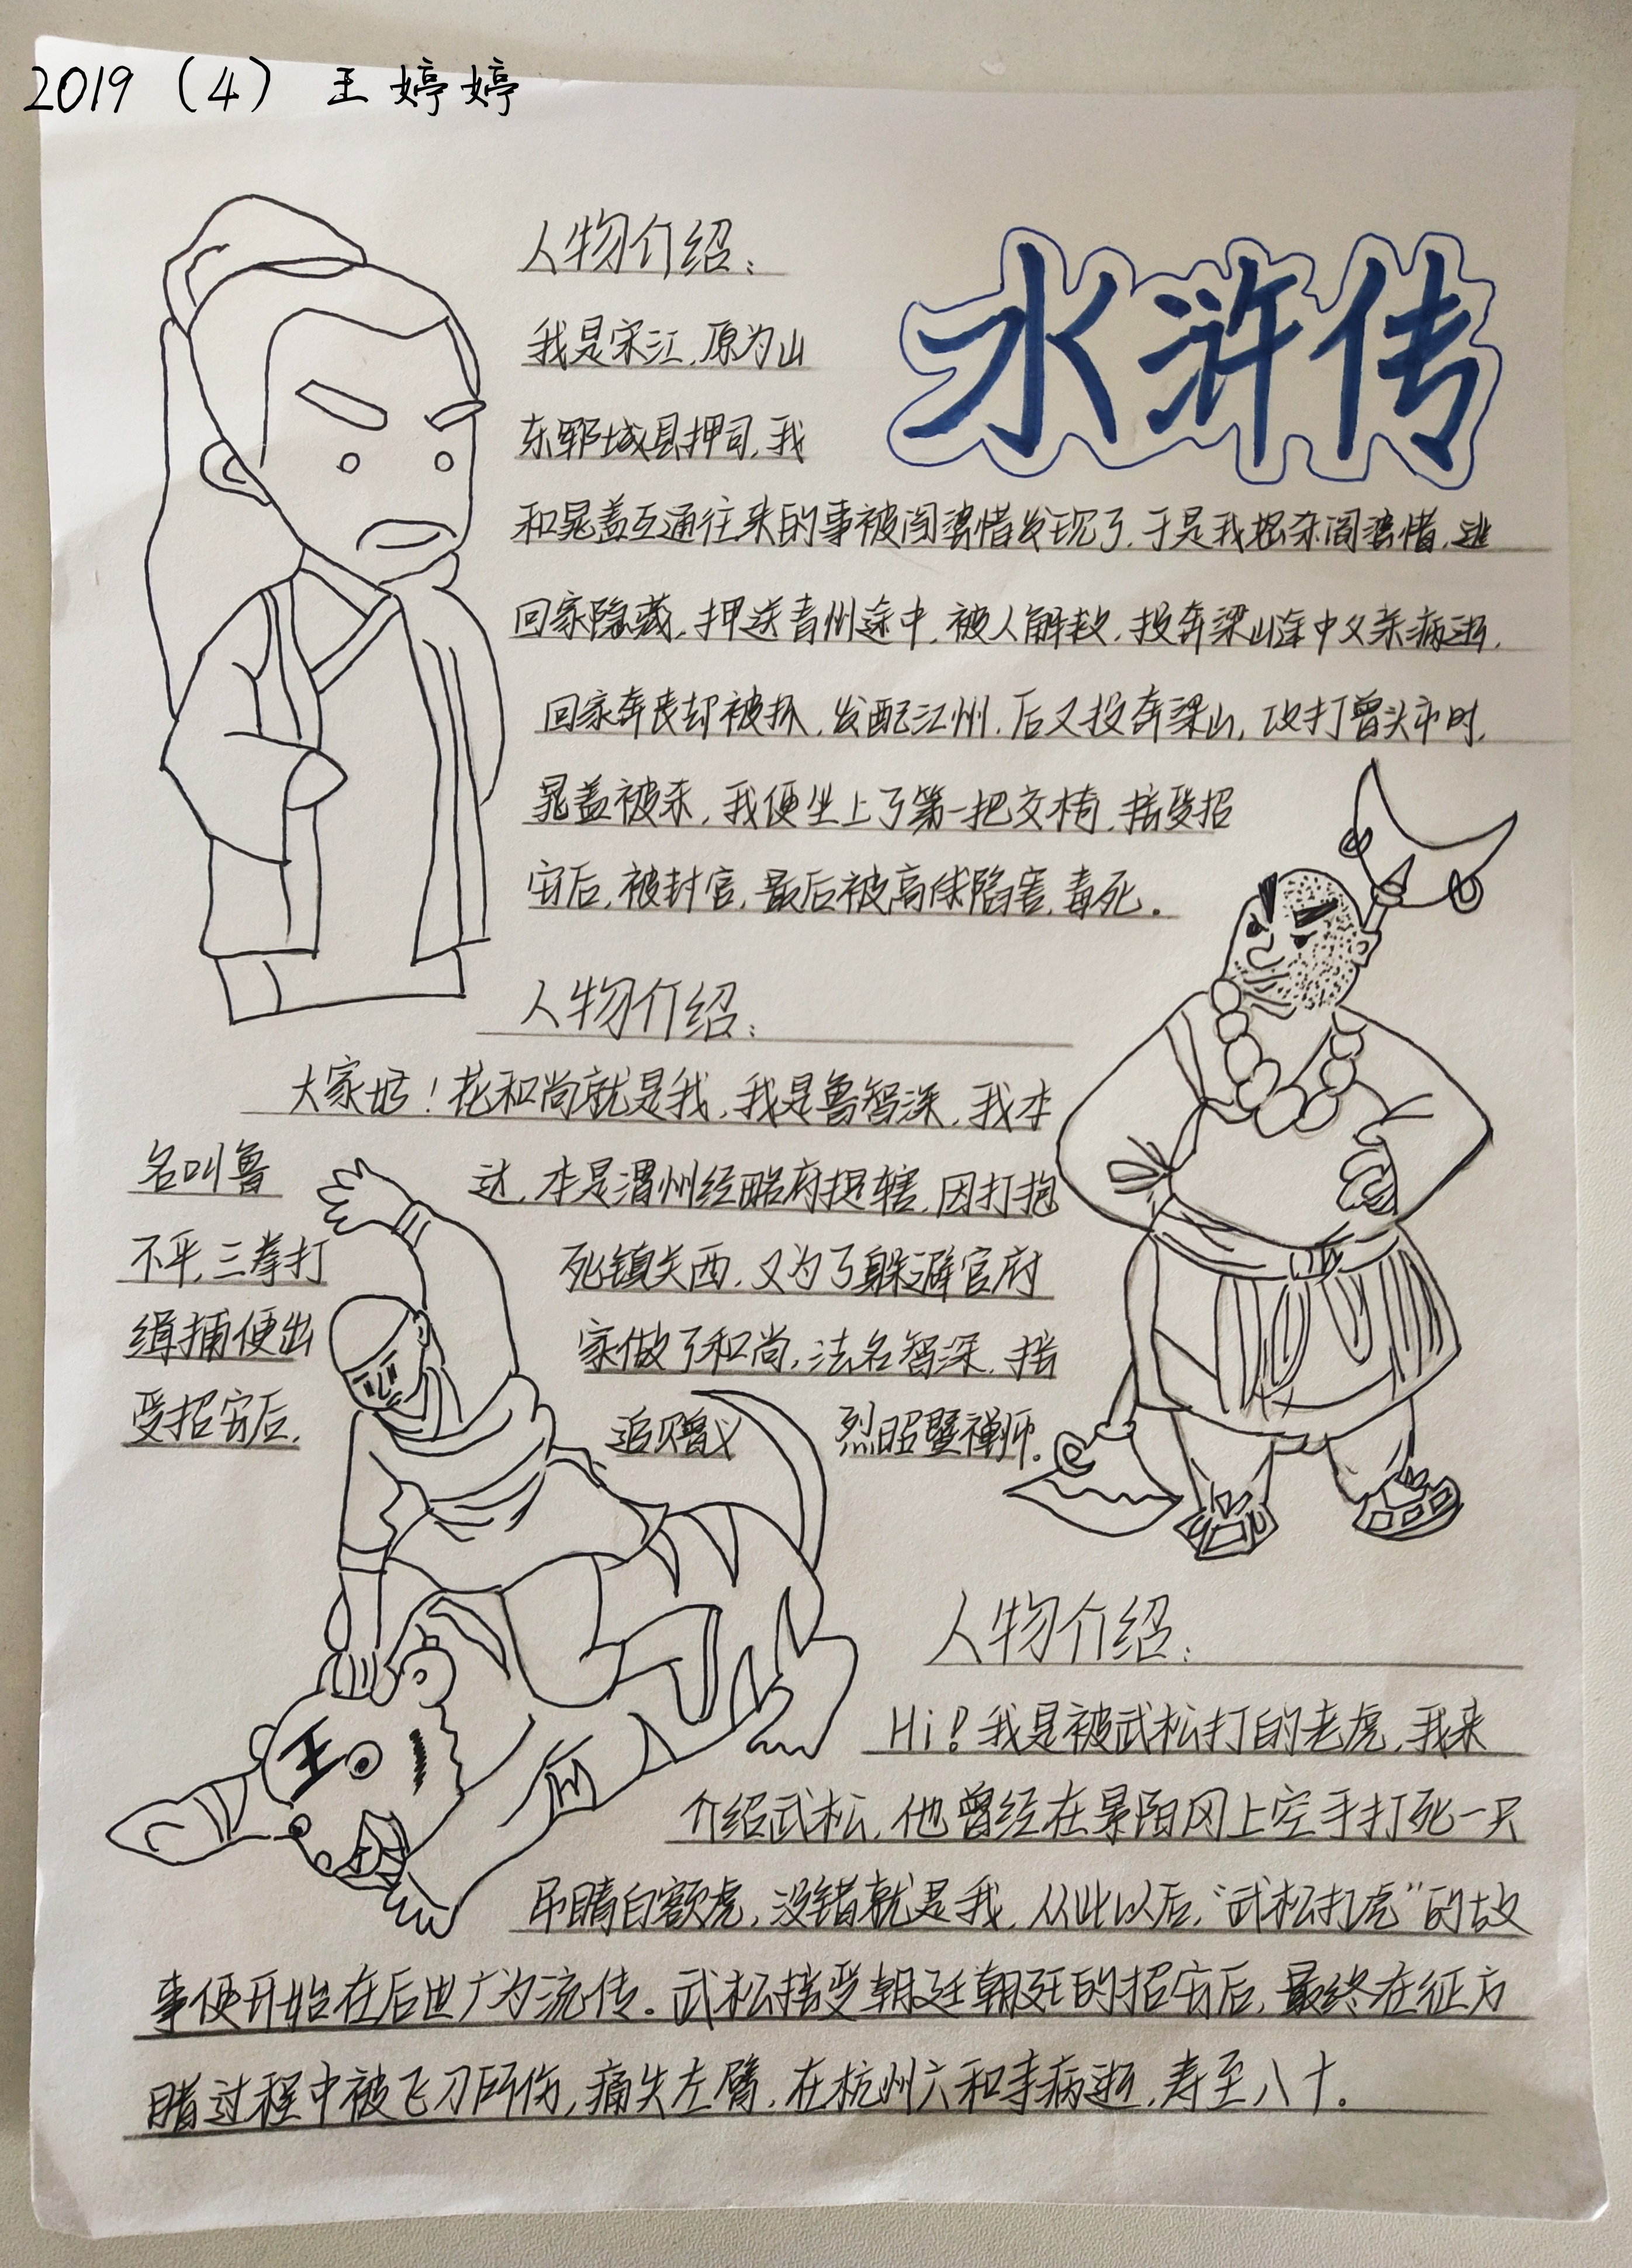 2019 (4) 王婷婷
水浒传
人物介绍:
我是宋江,原为山
东郓城县押司,我
和晁盖互通往来的事被阎婆惜发现了,于是我怒杀阎婆惜,逃
回家隐藏,押送青州途中,被人解救,投奔梁山途中父亲病逝,
回家奔丧却被抓,发配江州,后又投奔梁山,攻打曾头市时,
晁盖被杀,我便坐上了第一把交椅,接受招
安后,被封官,最后被高俅陷害,毒死。
人物介绍:
大家好!花和尚就是我,我是鲁智深,我本
名叫鲁达,本是渭州经略府提辖,因打抱
不平,三拳打死镇关西,又为了躲避官府
缉捕便出家做了和尚,法名智深,接
受招安后,追赠义烈昭暨禅师。
人物介绍:
Hi!我是被武松打的老虎,我来
介绍武松,他曾经在景阳冈上空手打死一只
吊睛白额虎,没错就是我,从此以后,“武松打虎”的故
事便开始在后世广为流传。武松接受朝廷朝廷的招安后,最终在征方
腊过程中被飞刀所伤,痛失左臂,在杭州六和寺病逝,寿至八十。
王